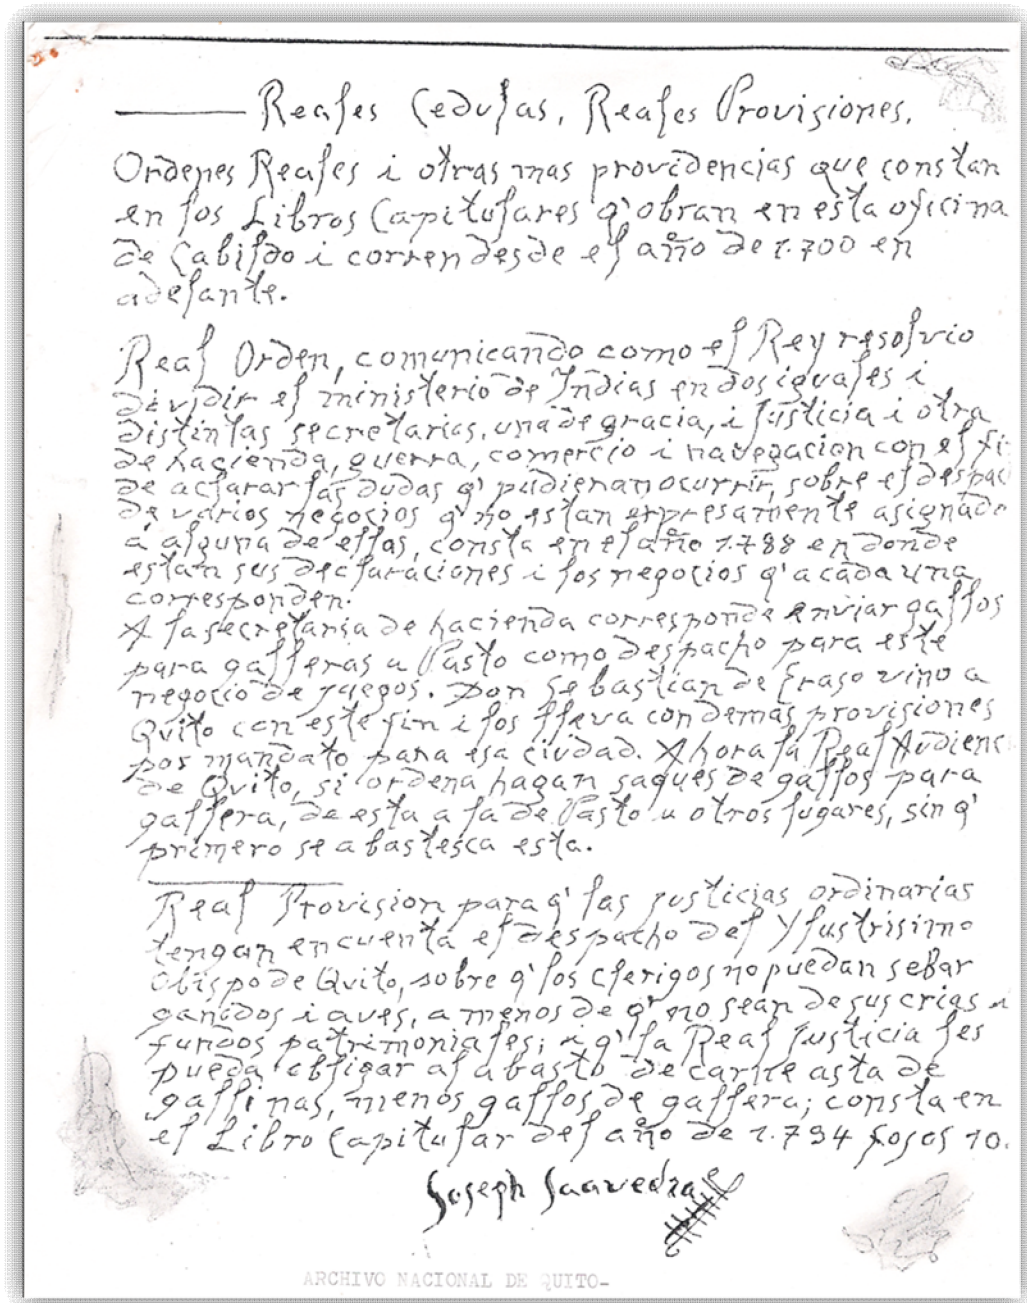 Reales Cedulas, Reales Provisiones,
Ordenes Reales i otras mas providencias que constan
en los Libros Capitulares q' obran en esta oficina
de Cabildo i corren desde el año de 1.700 en
adelante.
Real Orden, comunicando como el Rey resolvio
dividir el ministerio de Indias en dos iguales i
distintas secretarias, una de gracia, i Justicia i otra
de hacienda, guerra, comercio i navegacion con el fi
de aclarar las dudas q' pudieran ocurrir, sobre el despac
de varios negocios q' no estan expresamente asignado
a alguna de ellas, consta en el año 1.788 en donde
estan sus declaraciones i los negocios q' a cada una
corresponden.
A la secretaria de hacienda corresponde enviar gallos
para galleras a Pasto como despacho para este
negocio de juegos. Don Sebastian de Eraso vino a
Quito con este fin i los lleva con demas provisiones
por mandato para esa ciudad. Ahora la Real Audienc
de Quito, si ordena hagan saques de gallos para
gallera, de esta a la de Pasto u otros lugares, sin q'
primero se abastesca esta.
Real Provision para q' las justicias ordinarias
tengan en cuenta el despacho del Ylustrisimo
Obispo de Quito, sobre q' los clerigos no puedan sebar
ganados i aves, a menos de q' no sean de sus crias i
fundos patrimoniales; i q' la Real Justicia les
pueda obligar al abasto de carne asta de
gallinas, menos gallos de gallera; consta en
el Libro Capitular del año de 1.794 fosos 10.
Joseph Saavedra
ARCHIVO NACIONAL DE QUITO-